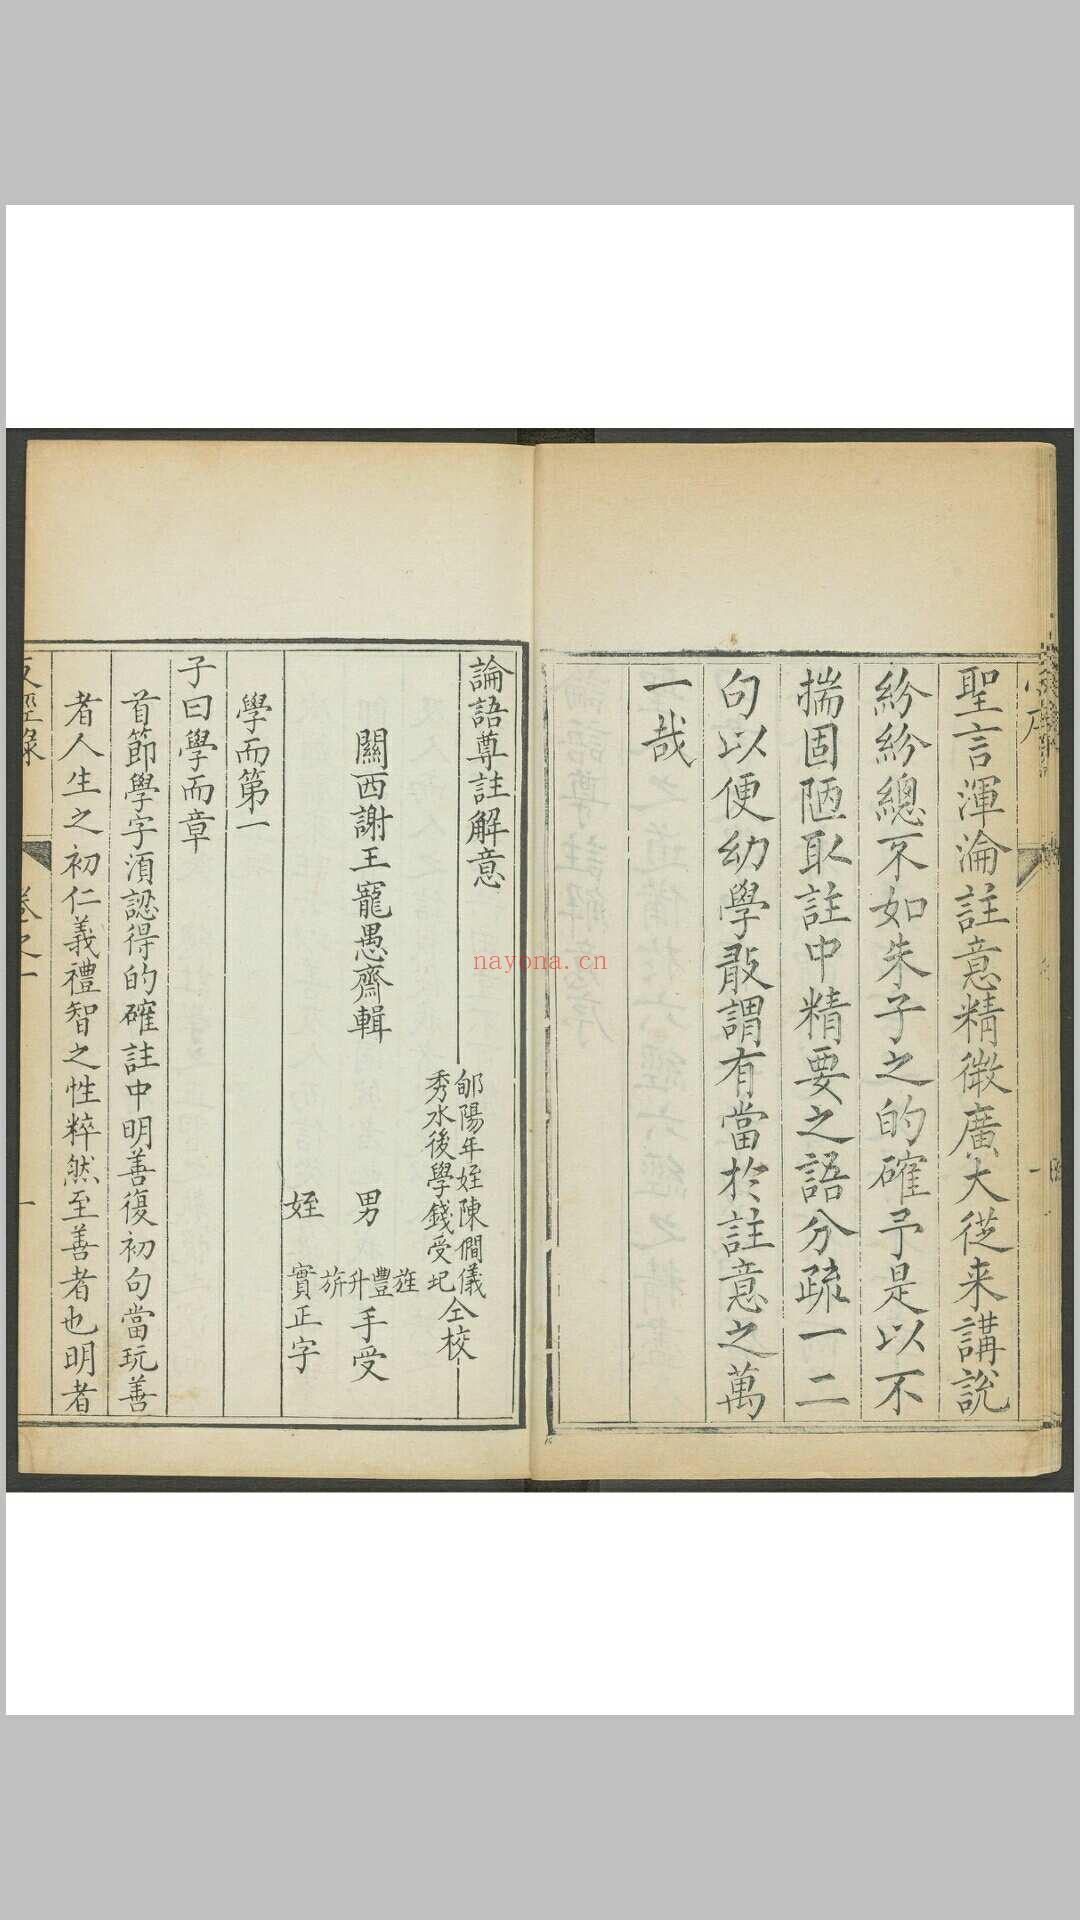 聖言渾淪註意精微廣大從来講說
紛紛總不如朱子之的確予是以不
揣固陋取註中精要之語分疏一二
句以便幼學敢謂有當於註意之萬
一哉
論語尊註解意
郇陽年姪陳僩儀
秀水後學錢受圯
仝校
關西謝王寵愚齋輯
男
旌
豐
升
旂
手受
姪
實正字
學而第一
子曰學而章
首節學字須認得的確註中明善復初句當玩善
者人生之初仁義禮智之性粹然至善者也明者
反經錄
卷之一
一
nayona.cn